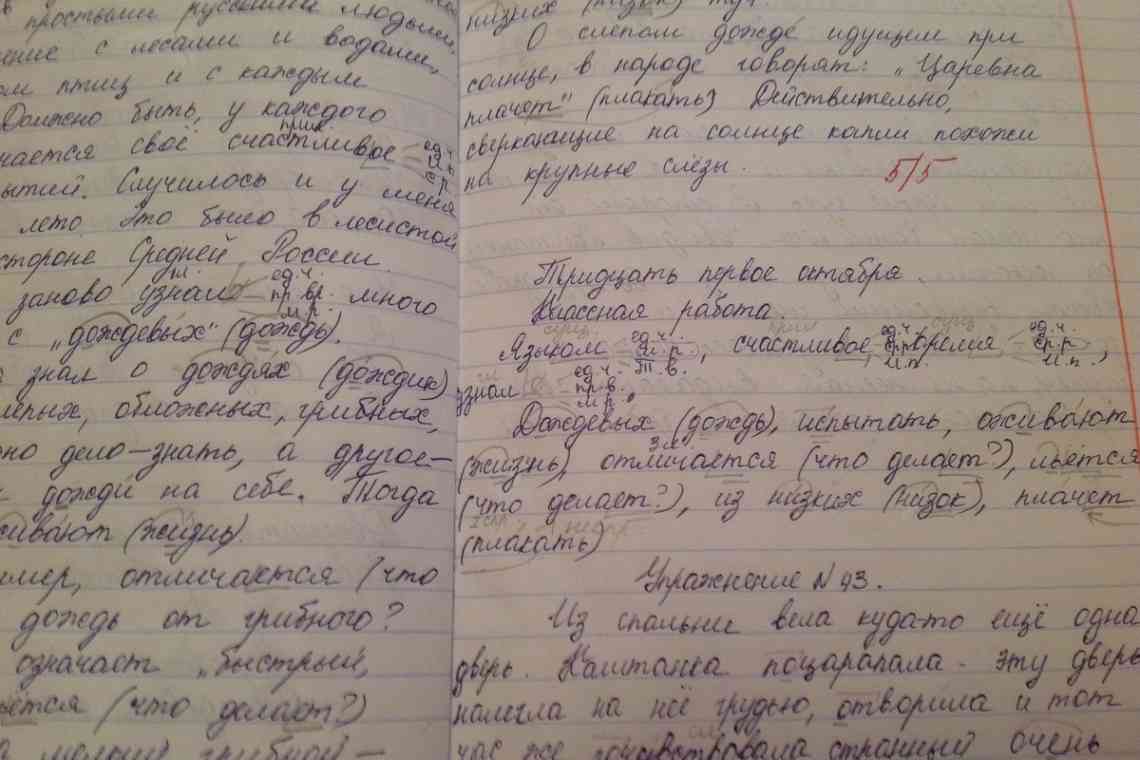 простыми русскими людьми,
с лесами и водами,
птиц и с каждым
Должно быть, у каждого
прил.
свё счастливое ед.ч. И. ср.
Случилось и у меня
лето. Это было в лесистой
стороне Средней России.
заново узнал ед.ч. пр.вр. м.р. много
с „дождевых" (дождь).
знал о дождях (дождик)
обложных, грибных,
дело – знать, а другое –
дожди на себе. Тогда
(жизнь).
отличается (что
дождь от грибного?
означает „быстрый,
(что делает?)
грибной –
низких (низок) туч.
О слепом дожде идущем при
солнце, в народе говорят: „Царевна
плачет" (плакать) Действительно,
сверкающие на солнце капли похожи
на крупные слёзы.
5/5
Тридцать первое октября.
Классная работа
Языком ед.ч. м.р. Т.в., счастливое, ед.ч. ср.р И.п. время ед.ч. ср.р И.п.,
узнал ед.ч. пр.в. м.р.
Дождевых (дождь), испытать, оживают
(жизнь), отличается (что делает?), льётся
(что делает?), из низких (низок), плачет
(плакать)
Упражнение N 93.
Из спальни вела куда-то ещё одна
дверь. Каштанка поцарапала эту дверь
налегла на неё грудью, отворила и тот
час же почувствовала странный очень